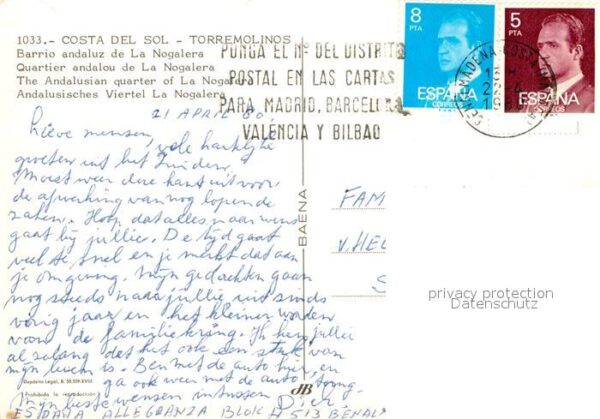 1033.- COSTA DEL SOL - TORREMOLINOS
Barrio andaluz de La Nogalera
Quartier andalou de La Nogalera
The Andalusian quarter of La Nogalera
Andalusisches Viertel La Nogalera
PONGA EL Nº DEL DISTRITO
POSTAL EN LAS CARTAS
PARA MADRID, BARCELONA
VALENCIA Y BILBAO
8
PTA
ESPAÑA
CORREOS
5
PTA
ESPAÑA
CORREOS
21 APRIL 80
Lieve mensen,
vele hartelijke
groeten uit het Zuiden.
Moest weer deze kant uit voor
de afwerking van nog lopende
zaken. Hoop dat alles naar wens
gaat bij jullie. De tijd gaat
veel te snel en je merkt dat aan
je omgeving. Mijn gedachten gaan
nog steeds naar jullie uit sinds
vorig jaar en het kleiner worden
van de familiekring. Ik ken jullie
al zolang dat het ook een stuk van
mijn leven is. Ben met de auto hier, en
ga ook weer met de auto terug.
Mijn beste wensen intussen
ESPAÑA ALLEGRANZA BLOK 513 BENAL
Prohibida la reproducción
Depósito Legal, B.
BAENA
dB
FAM
v. HEL
S
privacy protection
Datenschutz